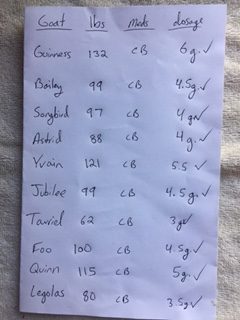 Goat lbs Meds dosage
Guinness 132 CB 6g. ✓
Bailey 99 CB 4.5g. ✓
Songbird 97 CB 4g ✓
Astrid 88 CB 4g. ✓
Yvain 121 CB 5.5 ✓
Jubilee 99 CB 4.5g. ✓
Tauriel 62 CB 3g ✓
Foo 100 CB 4.5g ✓
Quinn 115 CB 5g. ✓
Legolas 80 CB 3.5g ✓